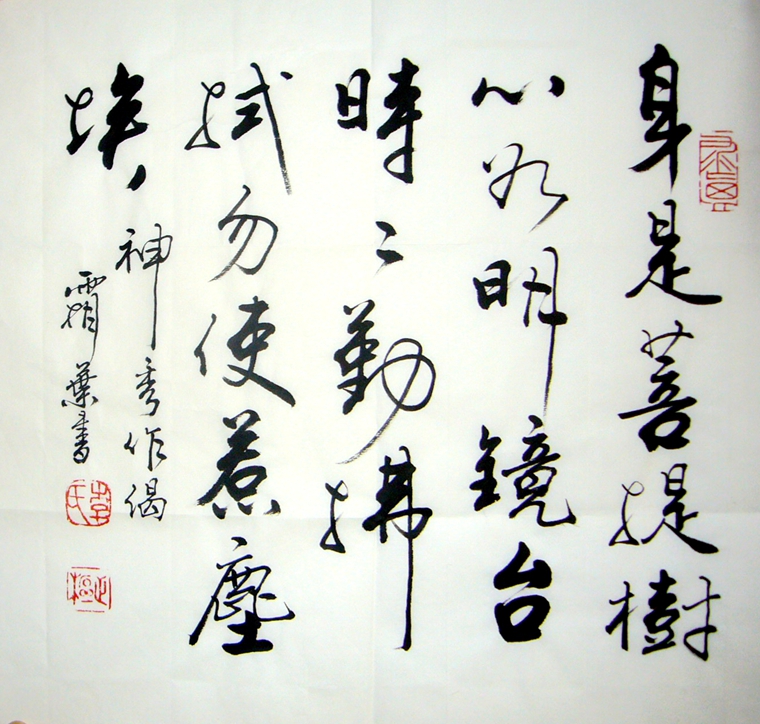 身是菩提樹
心如明镜台
時〻勤拂
拭勿使惹塵
埃
神秀作偈
霜葉書